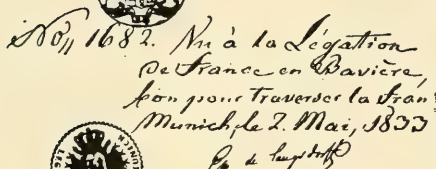 No,, 1682. Vu à la Légation
de France en Bavière,
bon pour traverser la Fran
Munich, le 2. Mai, 1833